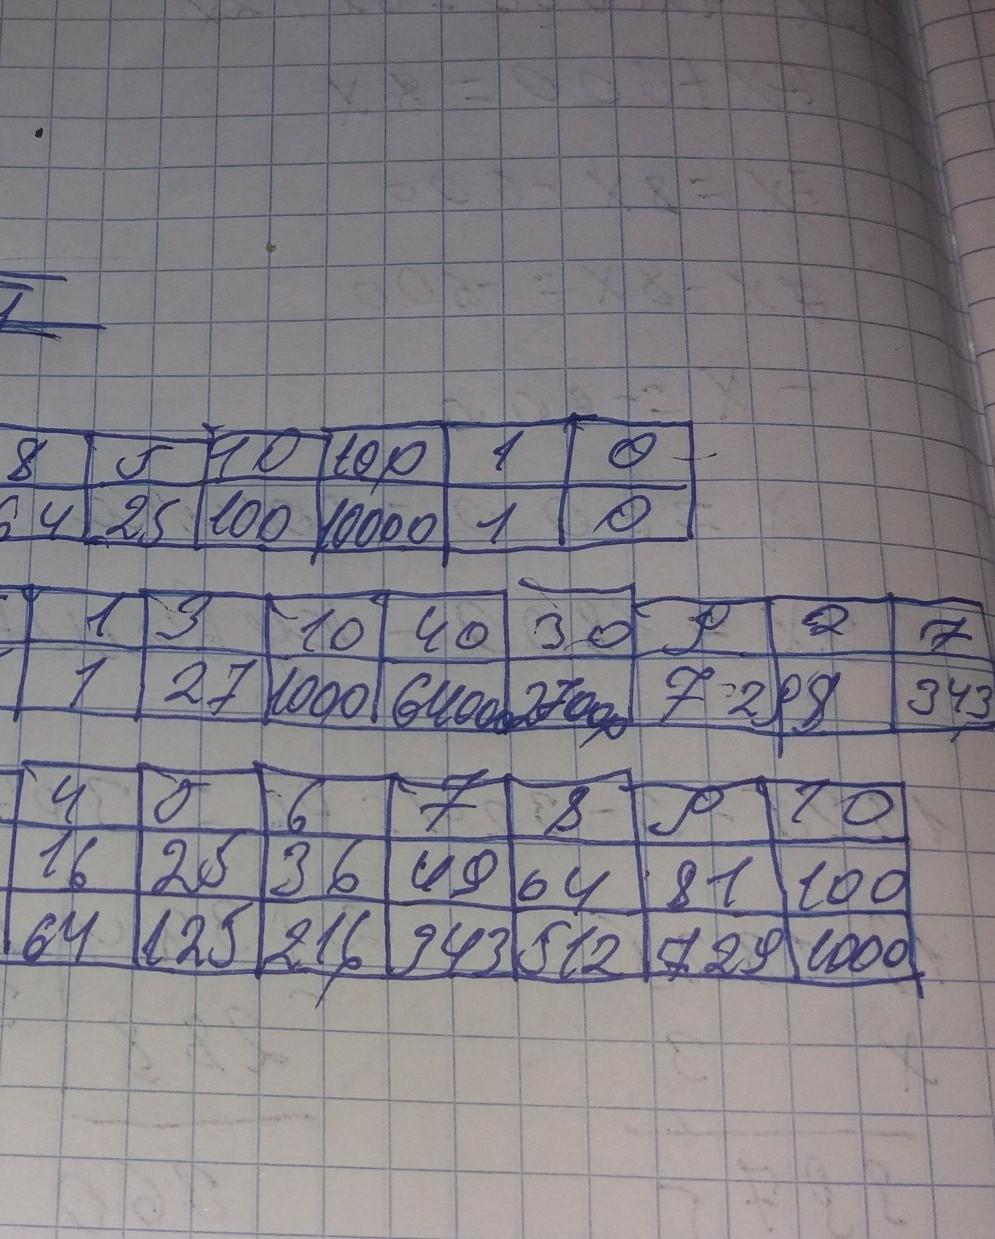 8 5 10 100 1 0
64 25 100 10000 1 0
1 3 10 40 30 9 2 7
1 27 1000 64000 27000 729 8 343
4 5 6 7 8 9 10
16 25 36 49 64 81 100
64 125 216 343 512 729 1000